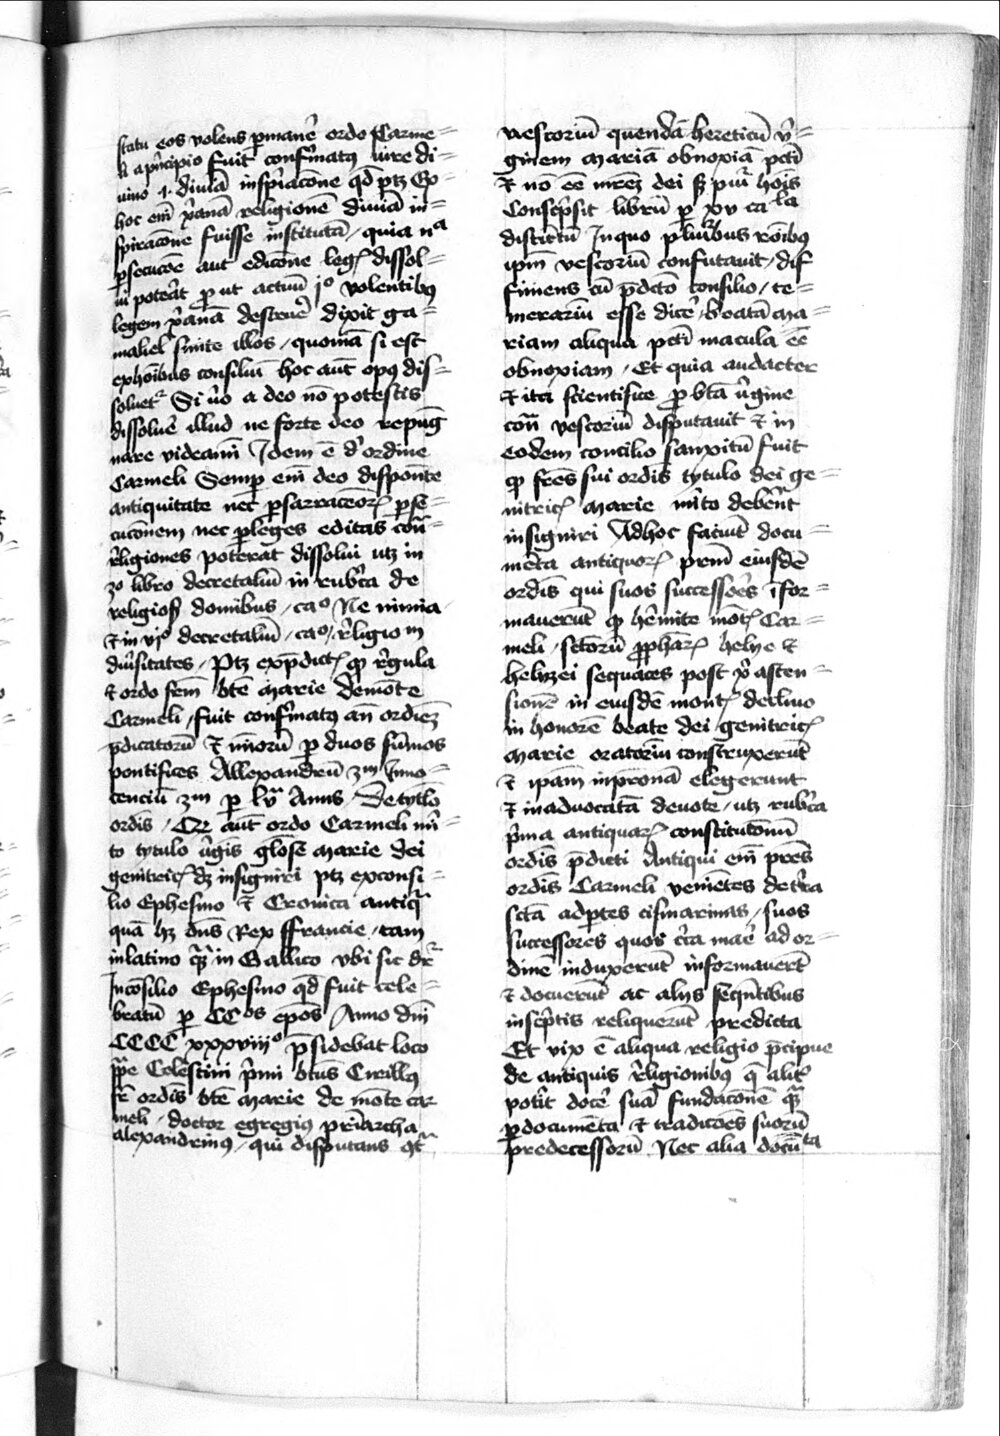 statu eos volens p̄manē ordo Carme=
li a pn̄cipio fuit confirmatꝯ iure di=
uino .i. diuiā inspiracōne qd̄ ptꝫ Eo=
hoc em̄ xp̄anā religionē diuiā in=
spiracōne fuisse institutā / quia nͣ
ꝑsecucōe aut edicōne legꝭ dissol=
ui potēat ꝓut actuū jº volentibꝯ
legem xp̄anā destruē dixit ga=
maliel sinite illos / quoniā si est
ex hōibus consiliū hoc aut̄ opꝯ dis=
soluetᷣ Si u̾o a deo nō potestis
dissoluē illud ne forte deo repuḡ
nare videamī Idem ē d' ordine
Carmeli Semꝑ em̄ deo disponēte
antiquitate nec ꝑ sarracenoꝝ ꝑse=
cucōnem nec ꝑ leges editas cōtᷓ=
religiones poterat dissolui utꝫ in
3º libro decretaliū in rubͥca de
religioſ domibus / caº Ne nimia
⁊ in vjº decretaliū / caº / religionū
diu̾sitates / Ptꝫ ex p̄dictꝭ ꝙ rēgula
⁊ ordo frm̄ btē Marie de mōte
Carmeli / fuit confirmatꝯ an̄ ordiēꝫ
p̄dicatorū ⁊ mīorū ꝑ duos sūmos
pontifices Allexandrū 3m Inno=
cenciū 3m ꝑ lvᷓ Annis / De tytlō
ordīs / Qꝛ aut̄ ordo Carmeli mͥ=
to tytulo u̾gīs glōse Marie dei
genitricꝭ dꝫ insigniri ptꝫ ex consi=
lio Ephesino ⁊ Cronica antiqᷓ
quā hꝫ dn̄s Rex ffrancie / tam
in latino qᷓꝫ in Gallico vbi sic drᷣ
In cōsilio Ephesino qd̄ fuit cele=
bratū ꝑ CCos epōs Anno dn̄i
CCCC xxxviiiº p̄sidebat loco
pp̄e Celestini pͥmi btūs Cirillꝯ
fr̄ ordīs btē Marie de mōte car
meli / doctor egregiꝯ pr̄iarcha
alexandrinꝯ / qui disputans ꝯtᷓ
nestoriū quendā hereticū vͥ=
ginem Mariā obnoxiā pctī
⁊ nō eē mrēꝫ dei sꝫ puri hōis
Conscͥpsit librū ꝑ xv caͥla
distinctū In quo pluribus rōibꝯ
ipm̄ nestoriū confutauit / dif
finiens cū p̄dcō consilio / te=
merariū esse dicē / beatā Ma=
riam aliqua pctī macula eē
obnoxiam / Et quia audacter
⁊ ita scientifice ꝓ btā u̾gine
cōtᷓ nestoriū disputauit ⁊ in
eodem concilio sanxitū fuit
ꝙ frēs sui ordīs tytulo dei ge=
nitricꝭ Marie mͥto debēnt
insigniri Ad hoc faciūt docu=
mēta antiquoꝝ prm̄ eiusdē
ordīs qui suos successōes īfor=
mauerūt ꝙ hēmite mōtꝭ Car=
meli / sctōrū ꝓphaꝝ helye ⁊
helyzei sequaces post xp̄i ascen=
sionē in eiusdē montꝭ decliuo
in honorē beate dei genitricꝭ
Marie oratoriū construxerūt
⁊ ipām in p̄ronā elegerunt
⁊ in aduocatā deuote / utꝫ rubͥca
pͥma antiquaꝝ constitucōnū
ordīs p̄dicti Antiqui em̄ prēs
ordīs Carmeli veniētes de t̾ra
sctā ad ptes cismarinas / suos
successores quos cͥca maē ad or=
dinē induxerūt informauerūt
⁊ docuerūt ac alijs seqn̄tibus
in scͥptis reliquerūt predicta
Et vix ē aliqua religio p̄cipue
de antiquis religionibꝯ q̄ alitᷣ
potīt docē suā fundacōnē qᷓ
ꝑ documēta ⁊ tradicōes suorū
predecessorū Nec alia docūta